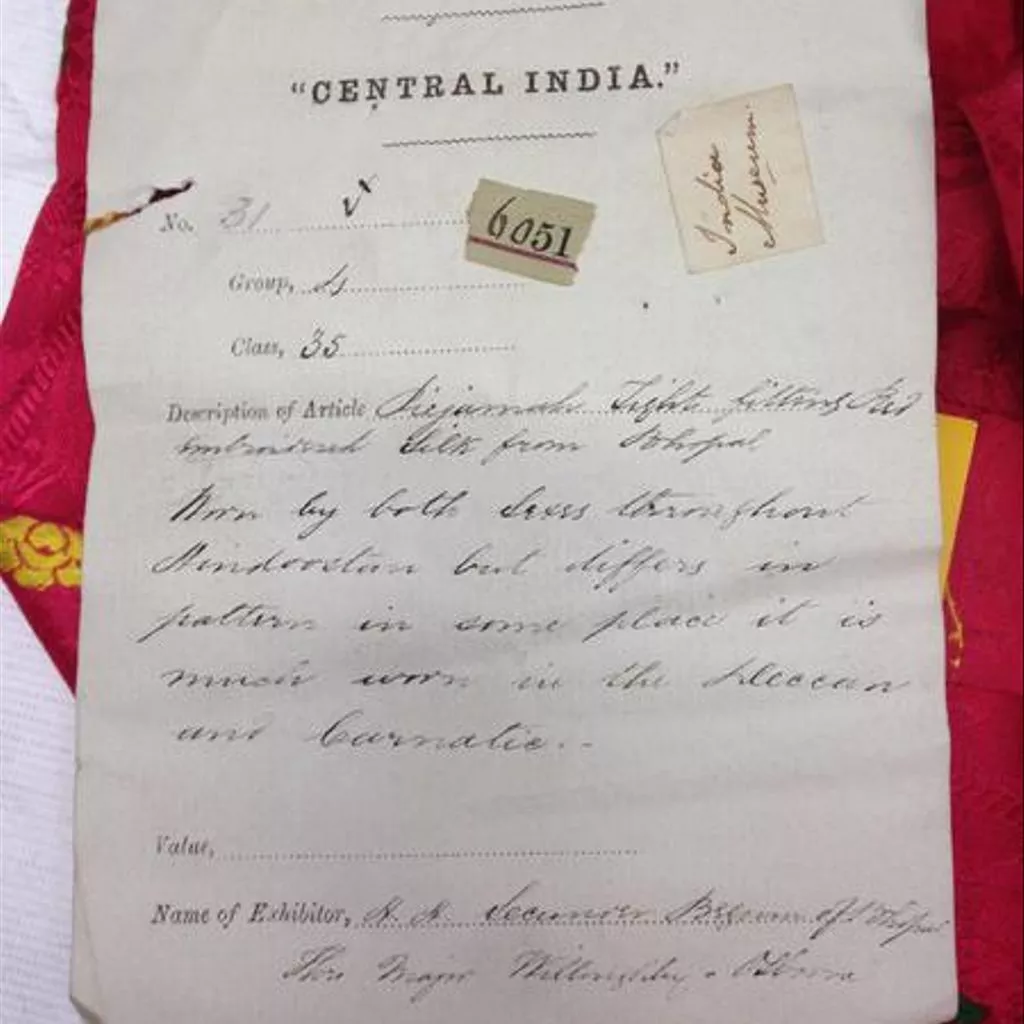 "CENTRAL INDIA."
India
Museum.
No. 31
6051
Group,
Class, 35
Description of Article Piejamah Tight fitting Red
embroidered Silk from Bhopal
Worn by both Sexes throughout
Hindoostan but differs in
pattern in some place it is
much worn in the Deccan
and Carnatic.-
Value,
Name of Exhibitor, H. H. Secunder Begum of Bhopal
Thro Major Willoughby - Osborne